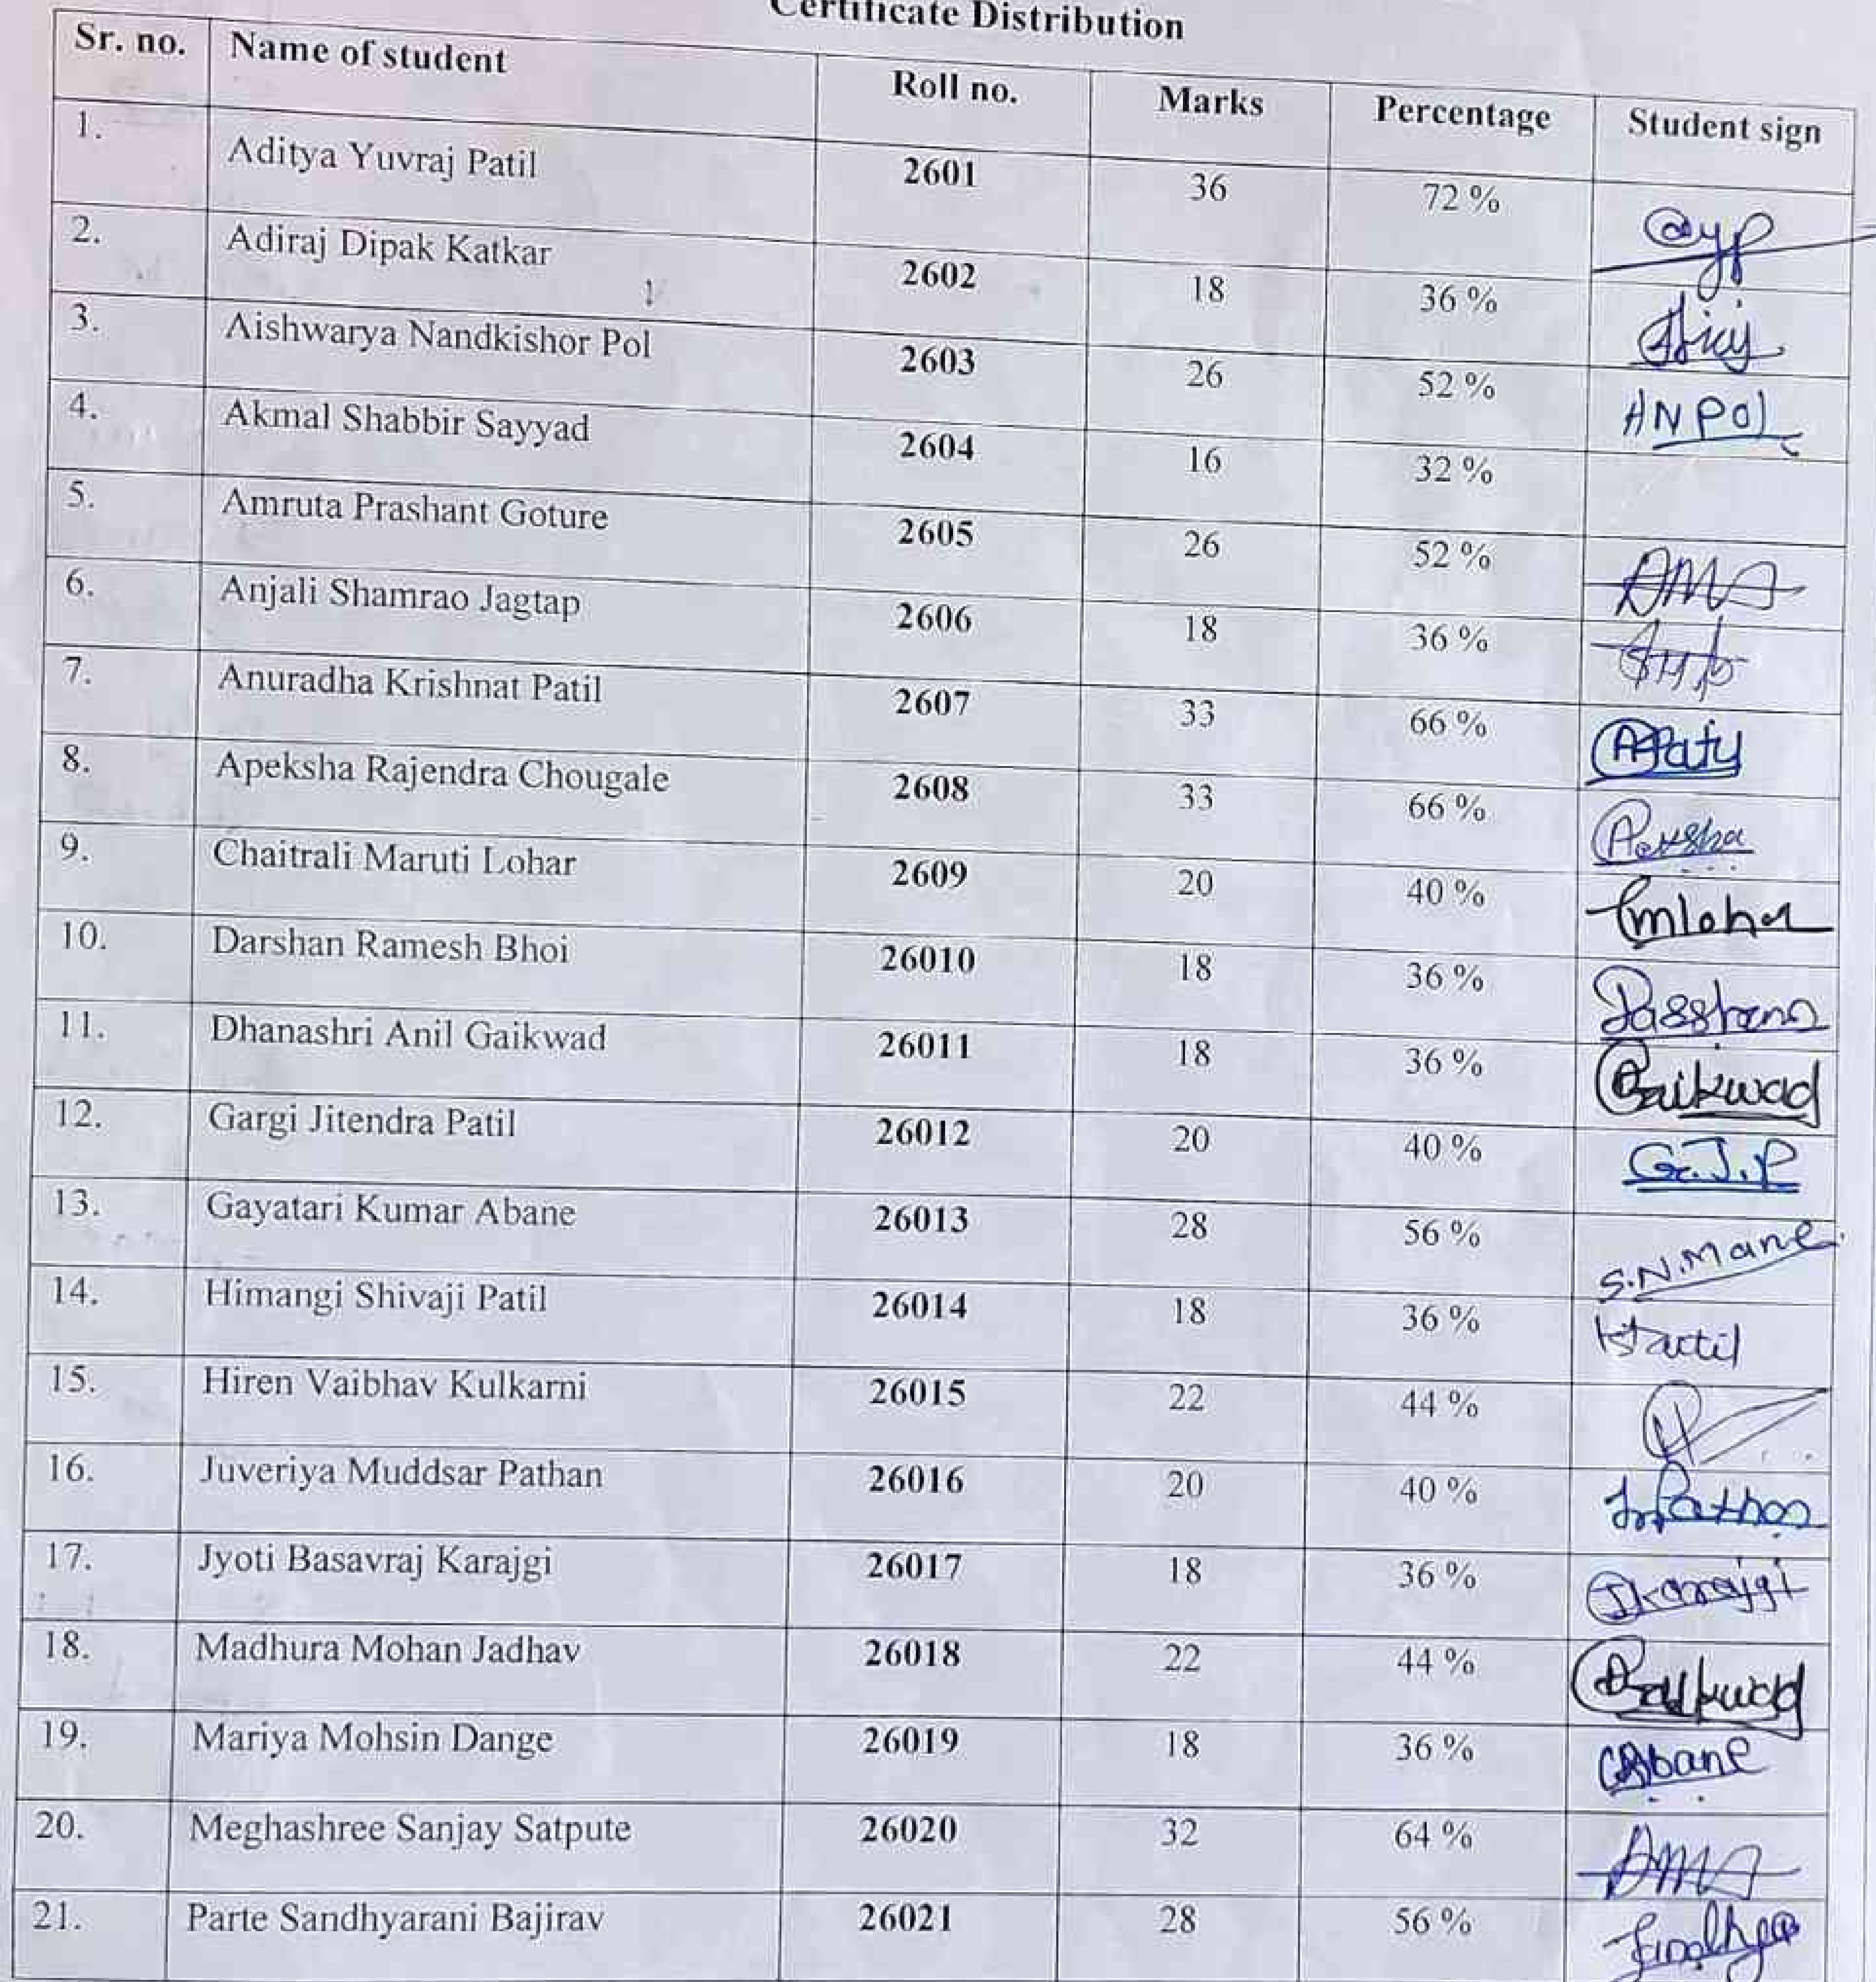 Certificate Distribution
Sr. no. Name of student Roll no. Marks Percentage Student sign
1. Aditya Yuvraj Patil 2601 36 72 %
2. Adiraj Dipak Katkar 2602 18 36 %
3. Aishwarya Nandkishor Pol 2603 26 52 % ANPol
4. Akmal Shabbir Sayyad 2604 16 32 %
5. Amruta Prashant Goture 2605 26 52 %
6. Anjali Shamrao Jagtap 2606 18 36 %
7. Anuradha Krishnat Patil 2607 33 66 %
8. Apeksha Rajendra Chougale 2608 33 66 %
9. Chaitrali Maruti Lohar 2609 20 40 %
10. Darshan Ramesh Bhoi 26010 18 36 %
11. Dhanashri Anil Gaikwad 26011 18 36 % Gaikwad
12. Gargi Jitendra Patil 26012 20 40 % G.J.P
13. Gayatari Kumar Abane 26013 28 56 % S.N.Mane
14. Himangi Shivaji Patil 26014 18 36 %
15. Hiren Vaibhav Kulkarni 26015 22 44 %
16. Juveriya Muddsar Pathan 26016 20 40 %
17. Jyoti Basavraj Karajgi 26017 18 36 % JKarajgi
18. Madhura Mohan Jadhav 26018 22 44 %
19. Mariya Mohsin Dange 26019 18 36 %
20. Meghashree Sanjay Satpute 26020 32 64 %
21. Parte Sandhyarani Bajirav 26021 28 56 %